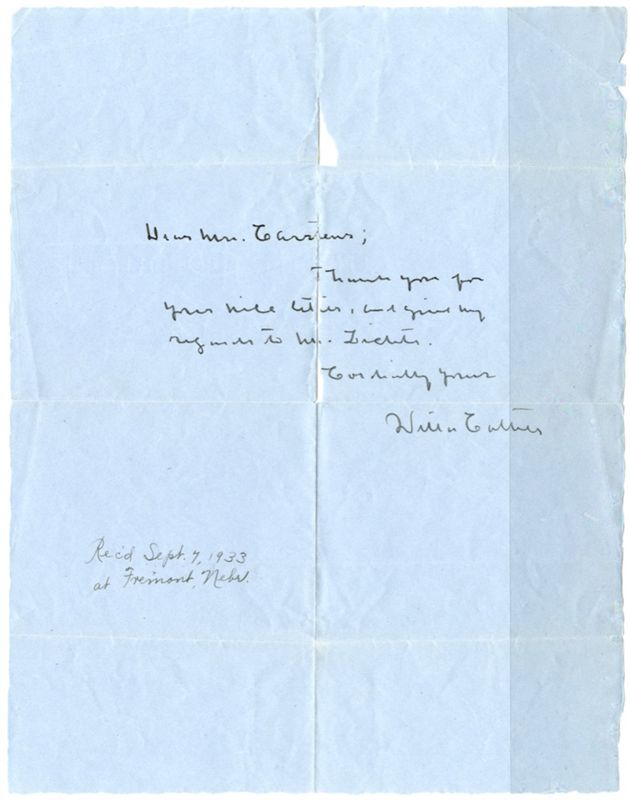 Dear Mrs. Carstens;
Thank you for
your nice letter, and give my
regards to Mr.
Cordially yours
Willa Cather
Rec'd Sept. 7, 1933
at Fremont, Nebr.